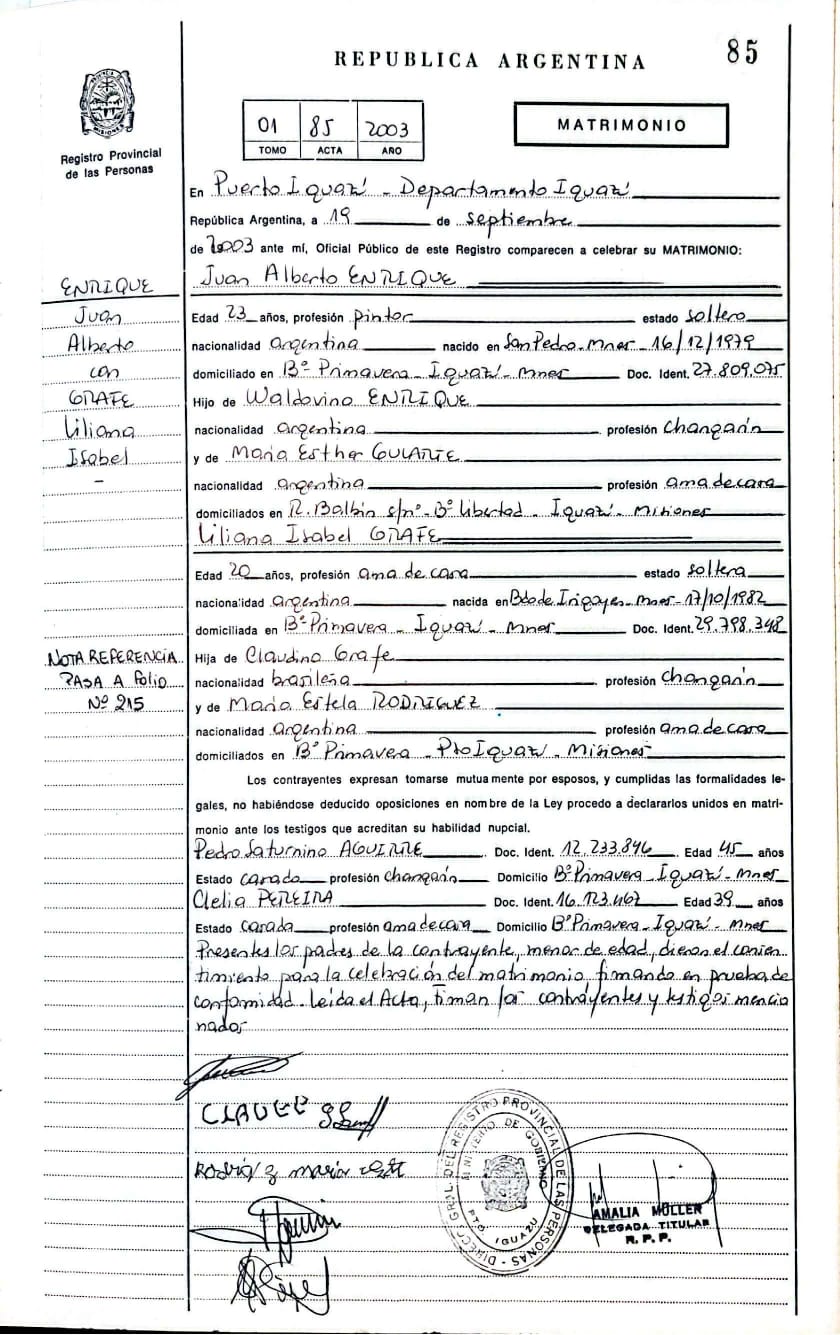 REPUBLICA ARGENTINA
85
PROVINCIA DE MISIONES
Registro Provincial
de las Personas
01 85 2003
TOMO ACTA AÑO
MATRIMONIO
En Puerto Iguazú - Departamento Iguazú
República Argentina, a 19 de septiembre
de 2003 ante mí, Oficial Público de este Registro comparecen a celebrar su MATRIMONIO:
Juan Alberto ENRIQUE
Edad 23 años, profesión pintor estado soltero
nacionalidad argentina nacido en San Pedro - Mnes - 16/12/1979
domiciliado en Bº Primavera - Iguazú - Mnes Doc. Ident. 27.809.075
Hijo de Waldovino ENRIQUE
nacionalidad argentina profesión changarín
y de Maria Esther GULARTE
nacionalidad argentina profesión ama de casa
domiciliados en R. Balbin s/nº - Bº Libertad - Iguazú - Misiones
Liliana Isabel GRAFE
Edad 20 años, profesión ama de casa estado soltera
nacionalidad argentina nacida en Bdo de Irigoyen - Mnes - 17/10/1982
domiciliada en Bº Primavera - Iguazú - Mnes Doc. Ident. 29.798.348
Hija de Claudino Grafe
nacionalidad brasileña profesión changarín
y de Maria Estela RODRIGUEZ
nacionalidad argentina profesión ama de casa
domiciliados en Bº Primavera - Pto Iguazú - Misiones
Los contrayentes expresan tomarse mutuamente por esposos, y cumplidas las formalidades le-
gales, no habiéndose deducido oposiciones en nombre de la Ley procedo a declararlos unidos en matri-
monio ante los testigos que acreditan su habilidad nupcial.
Pedro Saturnino AGUIRRE Doc. Ident. 12.233.846 Edad 45 años
Estado casado profesión changarín Domicilio Bº Primavera - Iguazú - Mnes
Clelia PEREIRA Doc. Ident. 16.123.467 Edad 39 años
Estado casada profesión ama de casa Domicilio Bº Primavera - Iguazú - Mnes
Presentes los padres de la contrayente, menor de edad, dieron el consen
timiento para la celebración del matrimonio firmando en prueba de
conformidad. Leída el Acta, firman los contrayentes y testigos mencio
nados
ENRIQUE
Juan
Alberto
con
GRAFE
Liliana
Isabel
-
NOTA REFERENCIA
PASA A Folio
Nº 215
Maria
DIRECC. GRAL. DEL REGISTRO PROVINCIAL DE LAS PERSONAS
MINISTERIO DE GOBIERNO
PTO. IGUAZU
AMALIA MÜLLER
DELEGADA TITULAR
R. P. P.